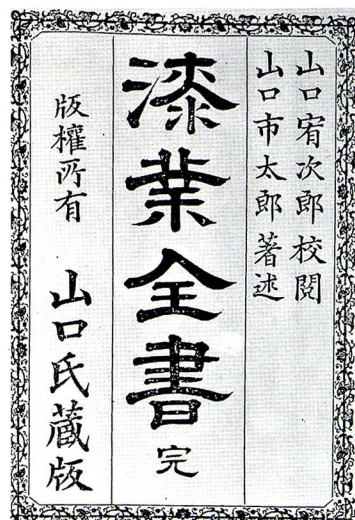 山口宥次郎校閲
山口市太郎著述
漆業全書 完
版權所有 山口氏蔵版